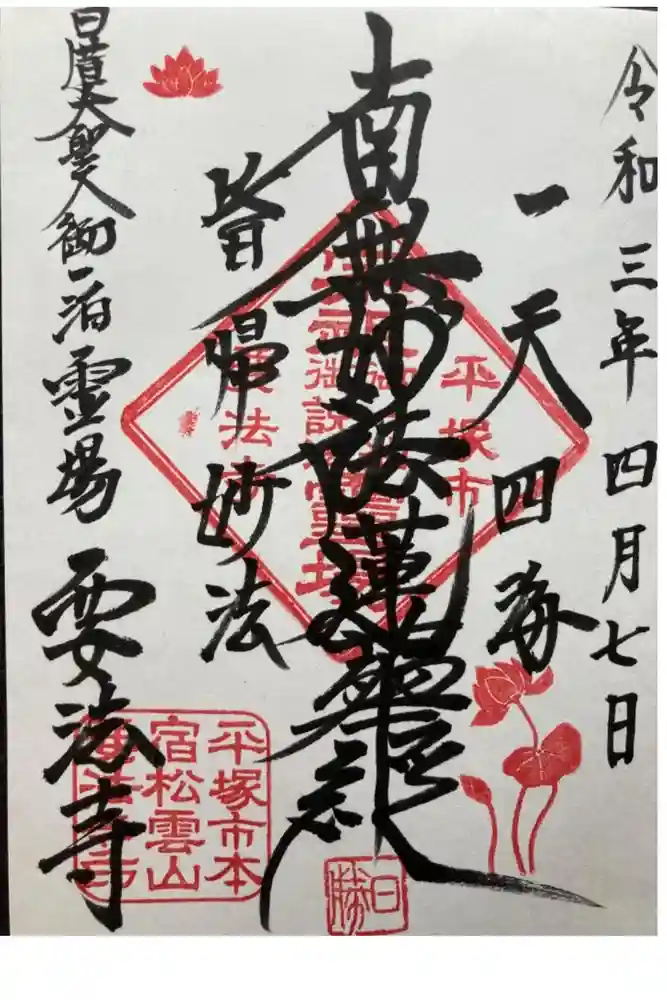 令和三年四月七日
一天四海
南無妙法蓮華経
皆帰妙法
日蓮大聖人御一泊霊場
要法寺
平塚市
要法寺
平塚市本
宿松雲山
要法寺